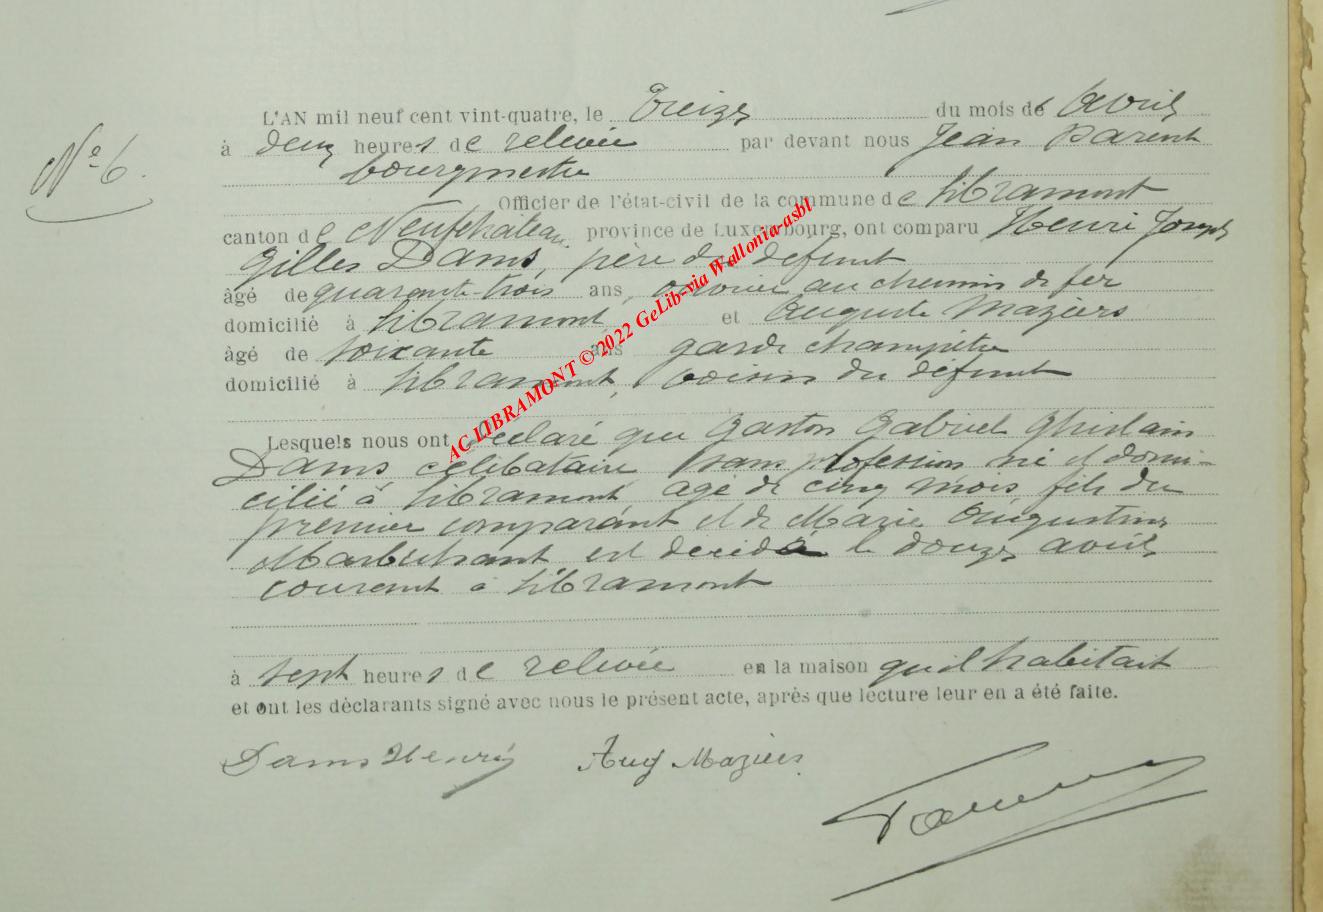 N° 6.
L'AN mil neuf cent vint-quatre, le Treize du mois de Avril
à deux heures de relevée par devant nous Jean Parent
bourgmestre
Officier de l'état-civil de la commune de Libramont
canton de Neufchâteau, province de Luxembourg, ont comparu Henri Joseph
Gilles Dams, père du défunt
âgé de quarante-trois ans, ouvrier au chemin de fer
domicilié à Libramont et Auguste Maziers
âgé de soixante ans garde champêtre
domicilié à Libramont, voisin du défunt
Lesquels nous ont déclaré que Gaston Gabriel Ghislain
Dams célibataire, sans profession né et domi-
cilié à Libramont, agé de cinq mois, fils du
premier comparant et de Marie Augustine
est décédé le douze avril
courant à Libramont
à sept heures de relevée en la maison qu'il habitait
et ont les déclarants signé avec nous le présent acte, après que lecture leur en a été faite.
Dams Henri Aug Maziers
AC LIBRAMONT © 2022 GeLib-via Wallonia-asbl